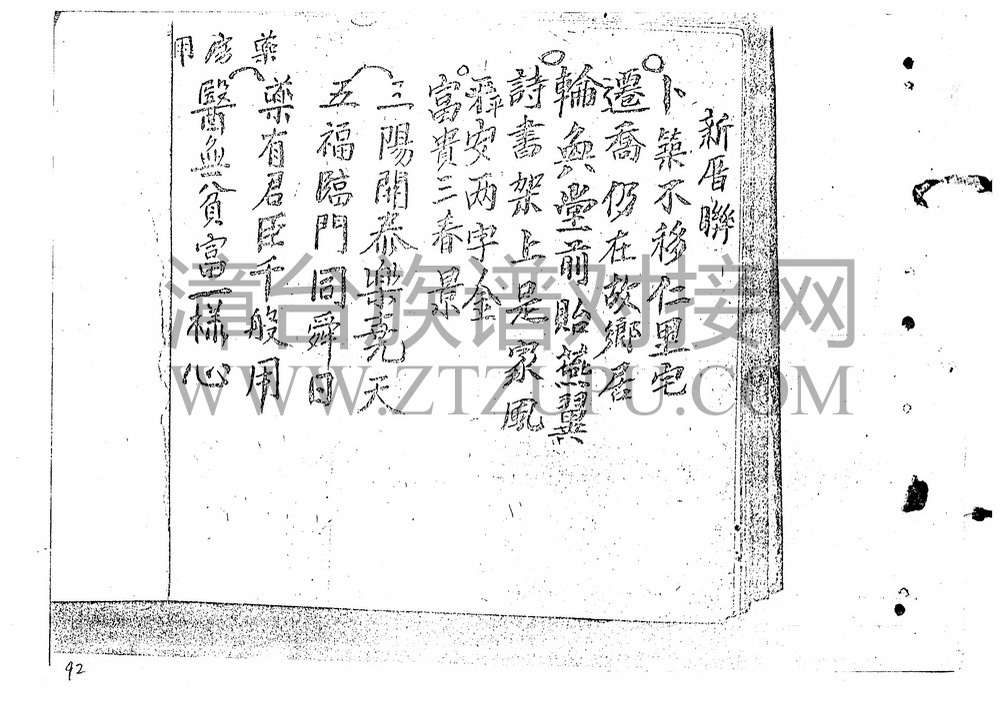 新厝聯
卜築不移仁里宅
遷喬仍在故鄉居
輪奐堂前貽燕翼
詩書架上是家風
安两字金
富貴三春景
三陽開泰堯天
五福臨門同舜日
藥房用
藥有君臣千般用
醫無貧富一樣心
漳台族谱对接网
WWW.ZTZUPU.COM
92